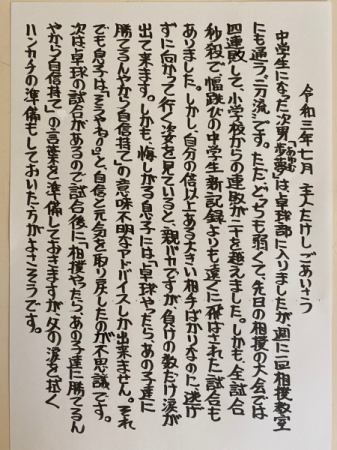 令和三年七月　主人たけしごあいさつ
中学生になった次男「歩夢(あゆむ)」は、卓球部に入りましたが、週に一回相撲教室
にも通う「二刀流」です。ただ、どっちも弱くて、先日の相撲の大会では
四連敗して、小学校からの連敗が二十を越えました。しかも、全試合
秒殺で、幅跳びの中学生新記録よりも遠くに飛ばされた試合も
ありました。しかし、自分の倍以上ある大きい相手ばかりなのに、逃げ
ずに向かって行く姿を見ていると、親バカですが、負けの数だけ涙が
出て来ます。しかも、悔しがる息子には、「卓球やったら、あの子達に
勝てるんやから自信持て」の意味不明なアドバイスしか出来ません。それ
でも息子は「そやね」と、自信と元気を取り戻したのが不思議です。
次は卓球の試合があるので、試合後に「相撲やったら、あの子達に勝てるん
やから自信持て」の言葉を準備しておきますが、父の涙を拭く
ハンカチの準備もしておいた方がよさそうです。